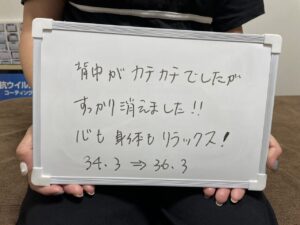 抗ウイル
コーティング
背中がカチカチでしたが
すっかり消えました!!
心も身体もリラックス!
34.3 ⇒ 36.3